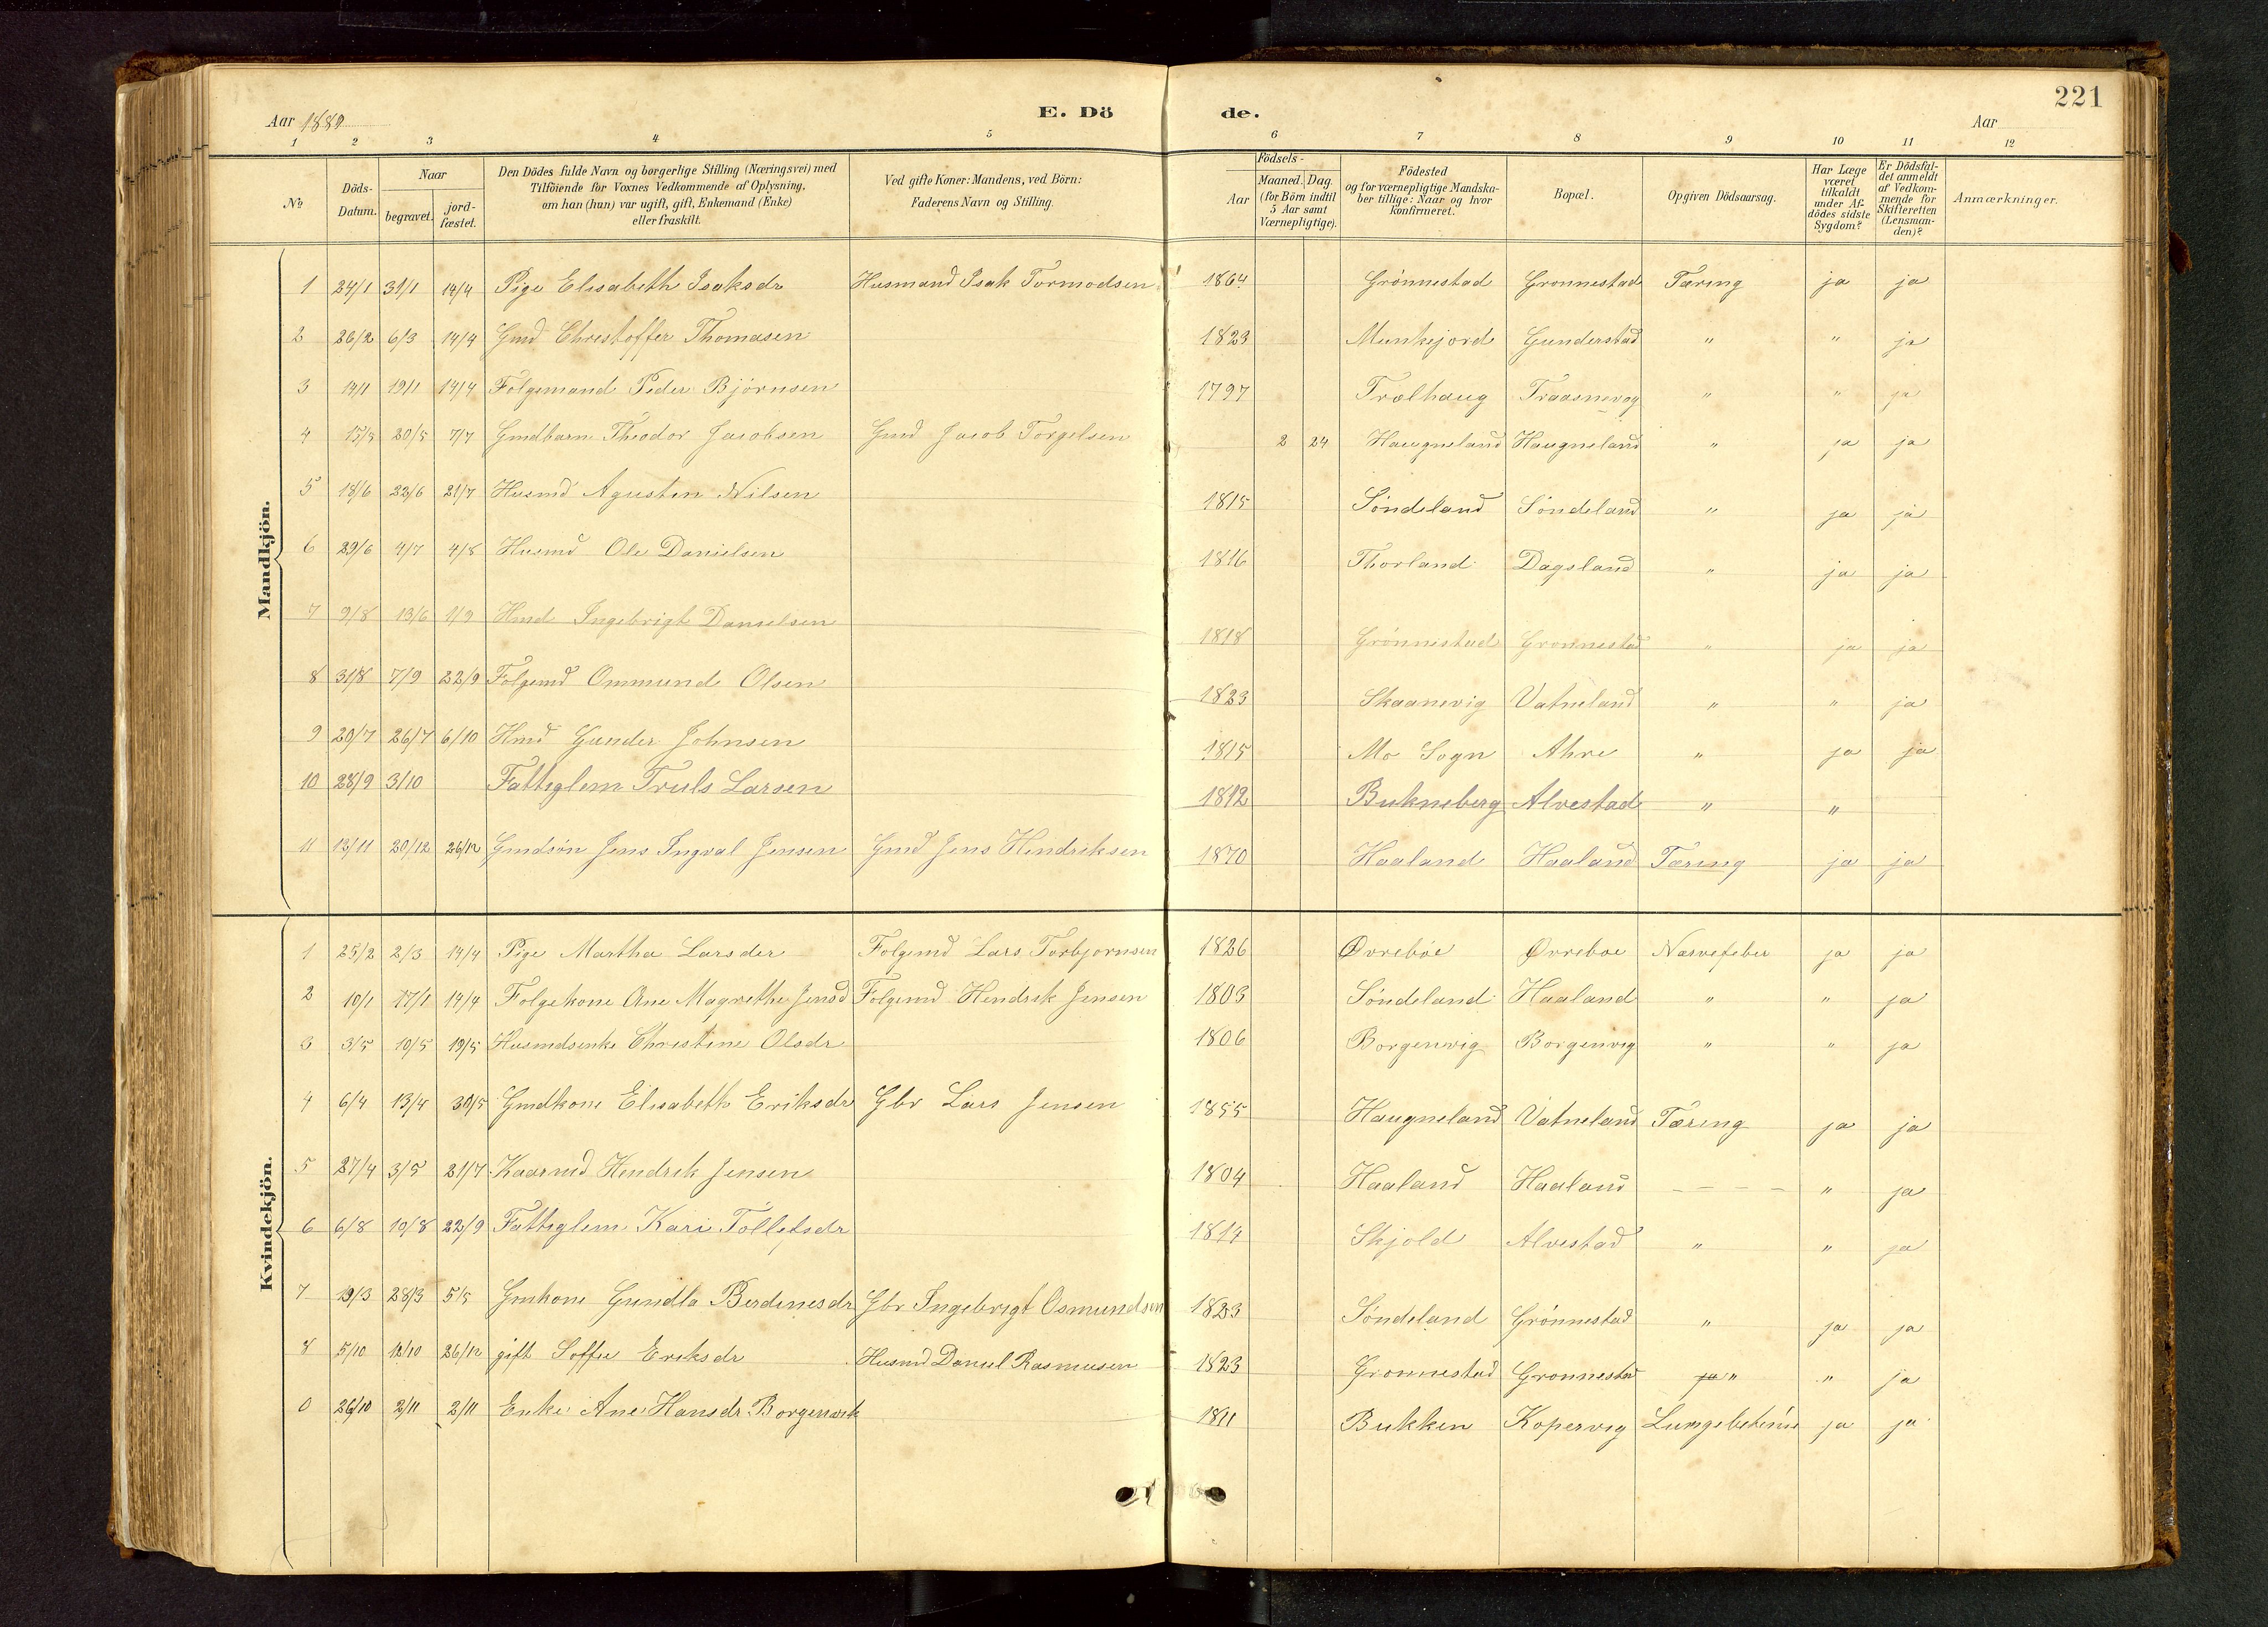 221
Aar 1889 E. Dö de. Aar
1 2 3 4 5 6 7 8 9 10 11 12
No Döds-Datum. Naar begravet. jordfæstet. Den Dödes fulde Navn og borgerlige Stilling (Næringsvei) med Tilföiende for Voxnes Vedkommende af Oplysning, om han (hun) var ugift, gift, Enkemand (Enke) eller fraskilt. Ved gifte Koner: Mandens, ved Börn: Faderens Navn og Stilling. Födsels- Aar Maaned. Dag. (for Börn indtil 5 Aar samt Værnepligtige). Födested og for værnepligtige Mandskaber tillige: Naar og hvor konfirmeret. Bopæl. Opgiven Dödsaarsag. Har Læge været tilkaldt under Afdödes sidste Sygdom? Er Dödsfaldet anmeldt af Vedkommende for Skifteretten (Lensmanden)? Anmærkninger.
Mandkjön.
1 24/1 31/1 14/4 Pige Elisabeth Isaksdr Husmand Isak Tormodsen 1864 Grönnestad Gronnestad Tæring ja ja
2 26/2 6/3 14/4 Gmd Christoffer Thomasen 1823 Munkejord Gunderstad " " ja
3 14/1 19/1 14/4 Folgemand Peder Björnsen 1797 Trælhaug Traasnevog " " ja
4 15/5 20/5 7/7 Gmdbarn Theodor Jacobsen Gmd Jacob Torgelsen 2 24 Haugneland Haugneland " ja ja
5 18/6 22/6 21/7 Husmd Agusten Nilsen 1815 Söndeland Söndeland " ja ja
6 29/6 4/7 4/8 Husmd Ole Danielsen 1816 Thorland Dagsland " ja ja
7 9/8 13/6 1/9 Hmd Ingebrigt Danielsen 1818 Grönnestad Gronnestad " ja ja
8 31/8 7/9 22/9 Folgemd Ommund Olsen 1823 Skaanevig Vatneland " " ja
9 20/7 26/7 6/10 Hmd Gunder Johnsen 1815 Mo Sogn Ahre " ja ja
10 28/9 3/10 Fattiglem Truls Larsen 1812 Bukneberg Alvestad " "
11 13/11 20/12 26/12 Gmdsön Jens Ingval Jensen Gmd Jens Hendriksen 1870 Haaland Haaland Tæring ja ja
Kvindekjön.
1 25/2 2/3 14/4 Pige Martha Larsder Folgemd Lars Torbjornsen 1826 Øvreböe Øvreboe Narvefeber ja ja
2 10/1 17/1 14/4 Folgekone Ane Magrethe Jensd Folgemd Hendrik Jensen 1803 Söndeland Haaland " " ja
3 3/5 10/5 19/5 Husmdsenke Christine Olsdr 1806 Borgenvig Borgenvig " " ja
4 6/4 13/4 30/5 Gmdkone Elisabeth Eriksdr Gbr Lars Jensen 1855 Haugneland Vatneland Tæring ja ja
5 27/4 3/5 21/7 Kaarmd Hendrik Jensen 1804 Haaland Haaland - - - " ja
6 6/8 10/8 22/9 Fattiglem Kari Tollefsdr 1814 Skjold Alvestad " " ja
7 19/3 28/3 5/5 Gmkone Gundla Berdinesdr Gbr Ingebrigt Osmundsen 1823 Söndeland Grönnestad " ja ja
8 5/10 12/10 26/12 gift Soffie Eriksdr Husmd Daniel Rasmusen 1823 Gronnestad Gronnestad ja " " ja
0 26/10 2/11 2/11 Enke Ane Hansdr Borgenvik 1811 Bukken Kopervig ja ja